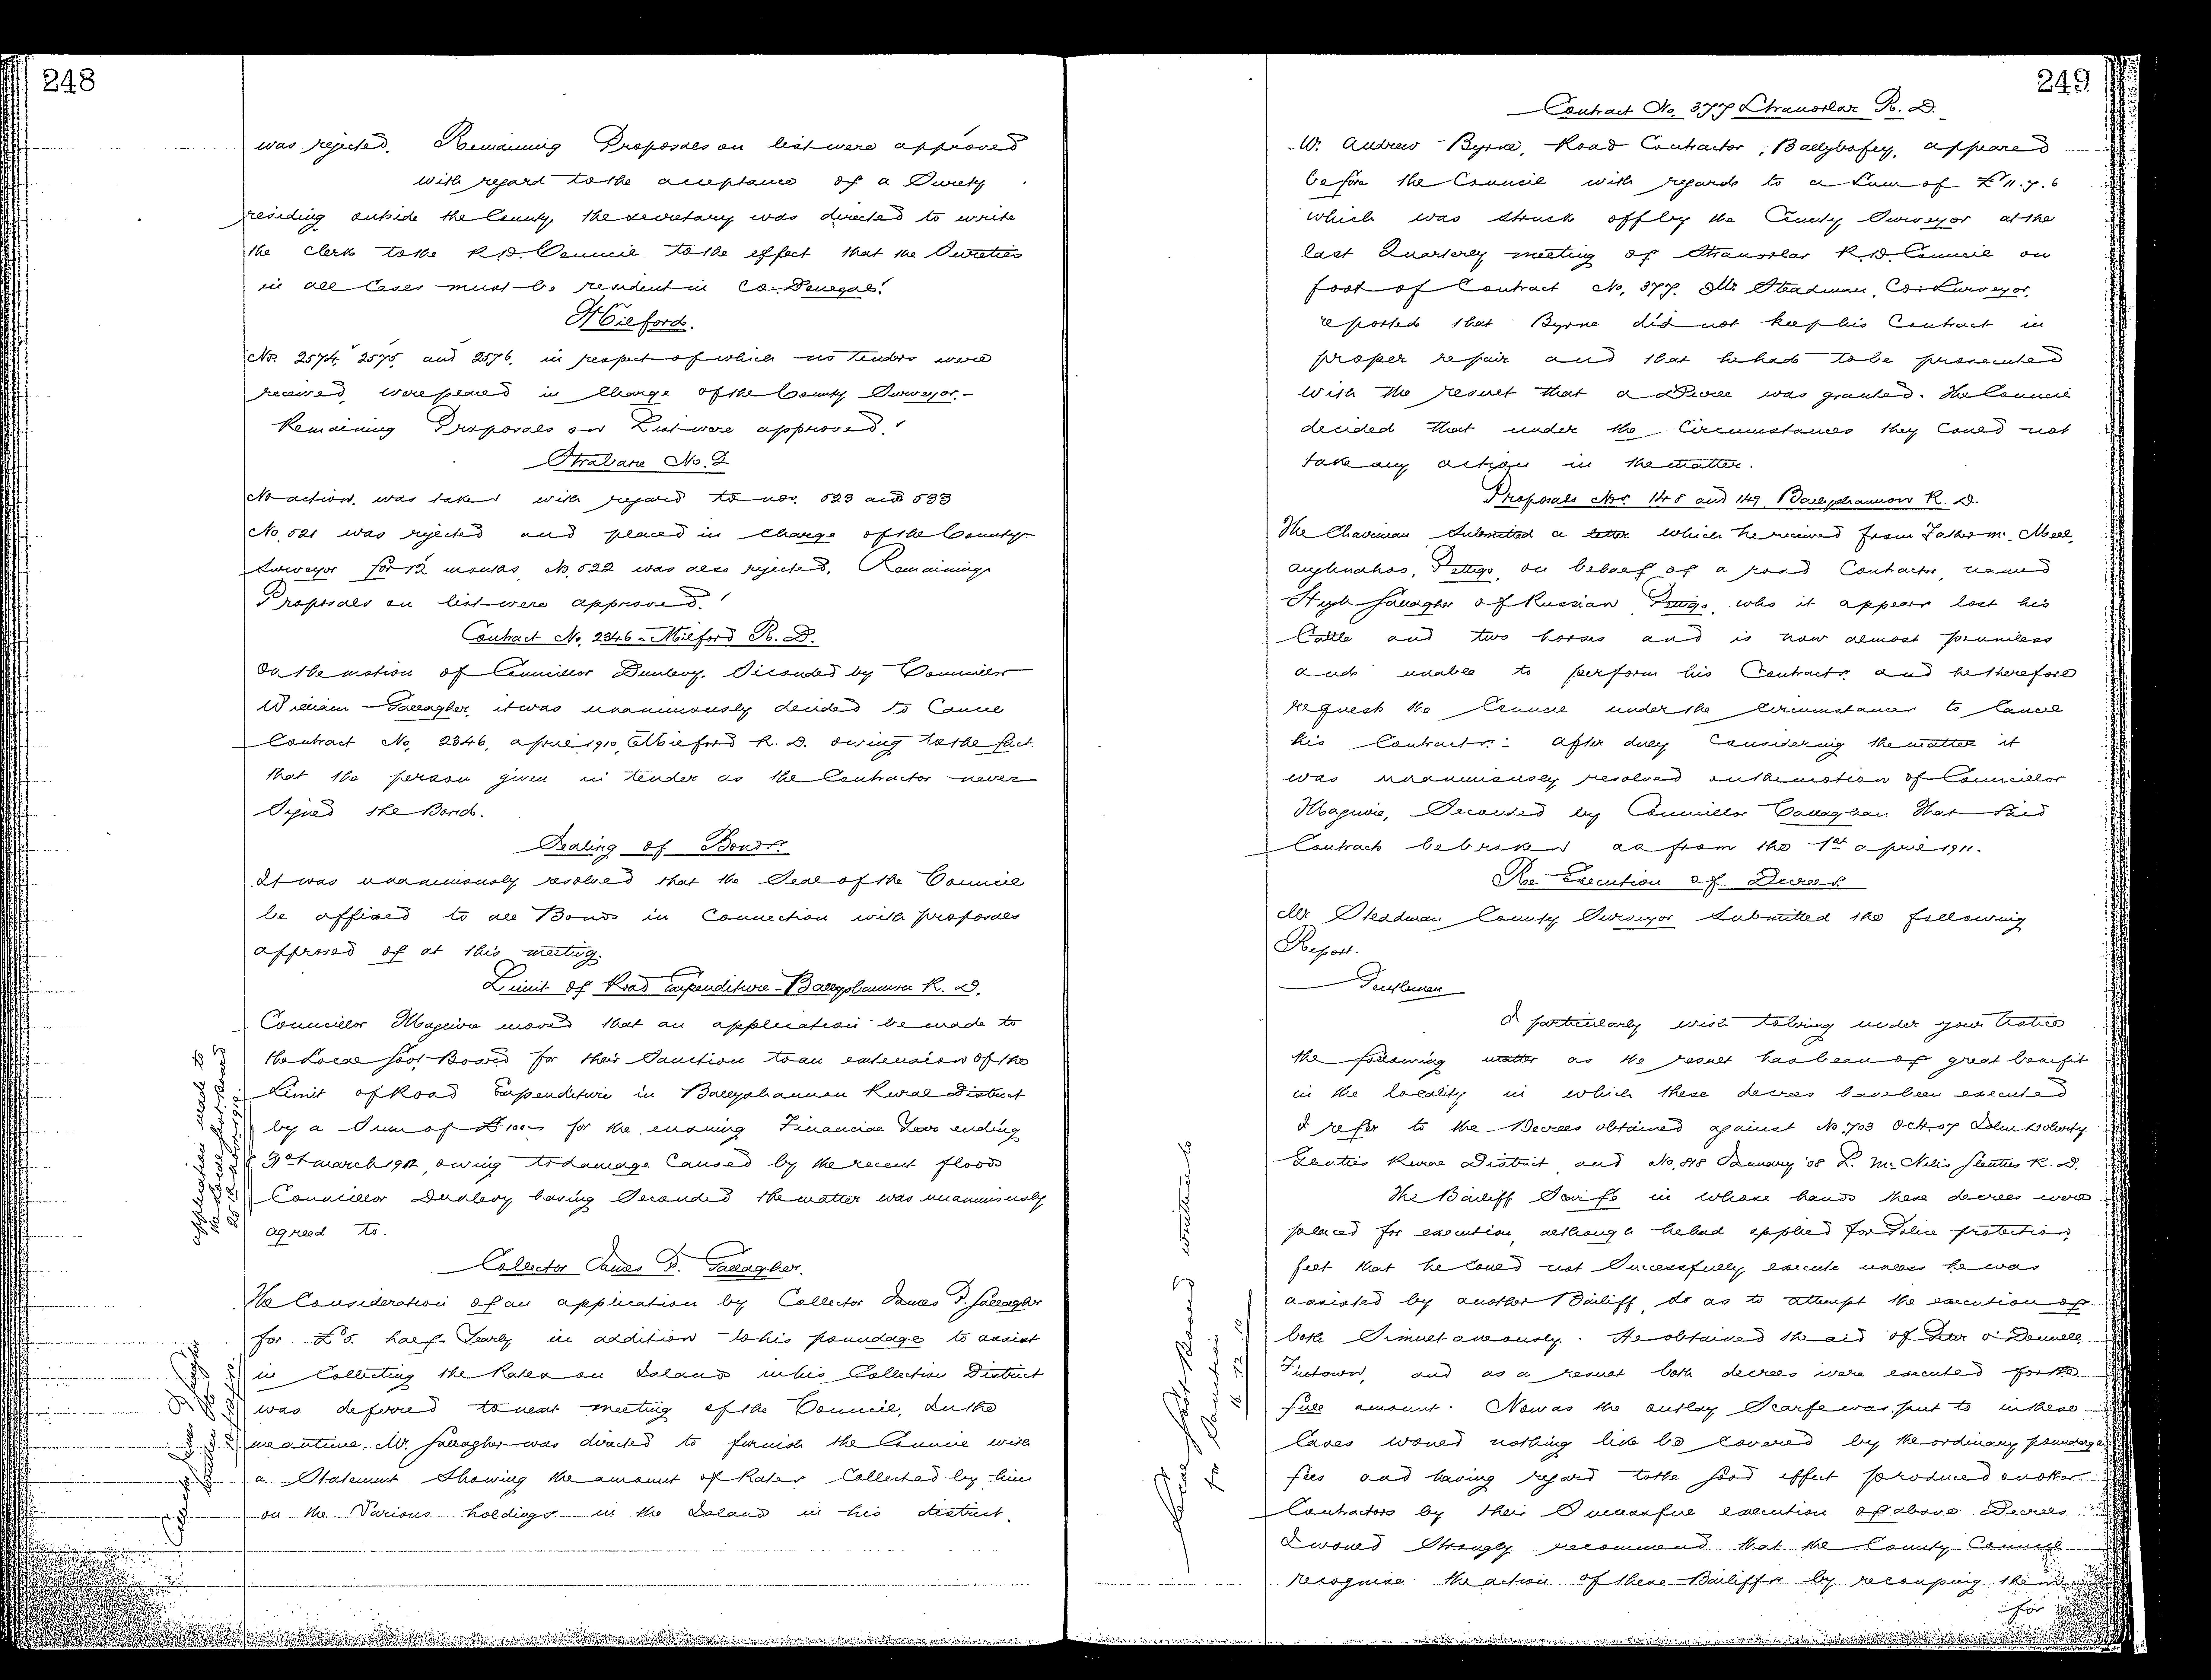 248
was rejected. Remaining Proposals on list were approved
with regard to the acceptance of a Surety
residing outside the County, the secretary was directed to write
the Clerk to the R.D. Council to the effect that the Sureties
in all Cases must be resident in Co. Donegal.
Milford.
Nos. 2574, 2575, and 2576, in respect of which no tenders were
received, were placed in Charge of the County Surveyor.-
Remaining Proposals on List were approved.
Strabane No. 2
No action was taken with regard to nos. 523 and 533
No. 521 was rejected and placed in Charge of the County
Surveyor for 12 months, No. 522 was also rejected. Remaining
Proposals on list were approved.
Contract No. 2346 - Milford R. D.
On the motion of Councillor Dunlevy, Seconded by Councillor
William Gallagher, it was unanimously decided to Cancel
Contract No. 2346, April 1910, Milford R. D. owing to the fact
that the person given in tender as the Contractor never
Signed the Bond.
Sealing of Bonds.
It was unanimously resolved that the Seal of the Council
be affixed to all Bonds in Connection with proposals
approved of at this meeting.
Limit of Road Expenditure - Ballyshannon R. D.
Councillor Maguire moved that an application be made to
the Local Govt. Board for their Sanction to an extension of the
Limit of Road Expenditure in Ballyshannon Rural District
by a Sum of £100 for the ensuing Financial Year ending
31st March 1912, owing to damage Caused by the recent floods
Councillor Dunlevy having Seconded the matter was unanimously
agreed to.
application made to
the Local Govt. Board
Collector James D. Gallagher.
The Consideration of an application by Collector James D. Gallagher
for £5. half-Yearly in addition to his poundage to assist
in Collecting the Rates on Islands in his Collection District
was deferred to next meeting of the Council. In the
meantime Mr. Gallagher was directed to furnish the Council with
a Statement Showing the amount of Rates Collected by him
on the Various holdings in the Island in his district.
249
Contract No. 377 Stranorlar R. D.
Mr. Andrew Byrne, Road Contractor, Ballybofey, appeared
before the Council with regards to a Sum of £11.7.6
which was struck off by the County Surveyor at the
last Quarterly meeting of Stranorlar R.D. Council on
foot of Contract No. 377. Mr. Steadman, Co: Surveyor,
reported that Byrne did not keep his Contract in
proper repair and that he had to be prosecuted
with the result that a Decree was granted. The Council
decided that under the Circumstances they Could not
take any action in the matter.
Proposals Nos. 148 and 149 Ballyshannon R. D.
The Chairman Submitted a letter which he received from Father
Pettigo, on behalf of a road Contractor, named
Hugh Gallagher of Russian Pettigo, who it appears lost his
Cattle and two horses and is now almost penniless
and unable to perform his Contracts and he therefore
request the Council under the Circumstances to Cancel
his Contracts: After duly Considering the matter it
was unanimously resolved on the motion of Councillor
Maguire, Seconded by Councillor Callaghan That Said
Contracts be broken as from the 1st April 1911.
Re Execution of Decrees.
Mr Steadman County Surveyor Submitted the following
Report.
Gentlemen
I particularly wish to bring under your Notice
the following matter as the result has been of great benefit
in the locality in which these decrees have been executed
I refer to the Decrees obtained against No. 703 Oct. 07
Glenties Rural District, and No. 818 January '08 Mc. Nelis Glenties R. D.
The Bailiff Scarfe in whose hands these decrees were
placed for execution, although he had applied for Police protection,
felt that he Could not Successfully execute unless he was
assisted by another Bailiff, so as to attempt the execution of
both Simultaneously. He obtained the aid of Peter O'Donnell,
Fintown, and as a result both decrees were executed for the
full amount. Now as the outlay Scarfe was put to in these
Cases would nothing like be Covered by the ordinary poundage
fees and having regard to the good effect produced on other
Contractors by their Successful execution of above Decrees
I would Strongly recommend that the County Council
recognise the action of these Bailiffs by recouping them
for
Local Govt Board written to
for Sanction
16 12 10